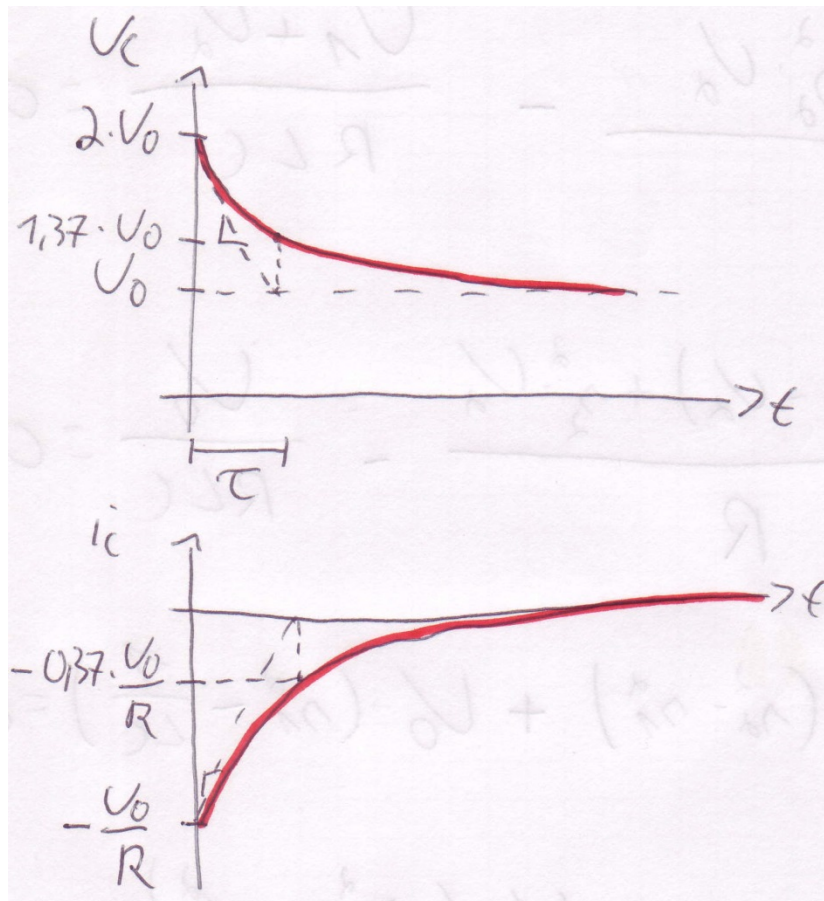 U_C
2·U_0
1,37·U_0
U_0
t
τ
i_C
t
-0,37·U_0
R
-U_0
R